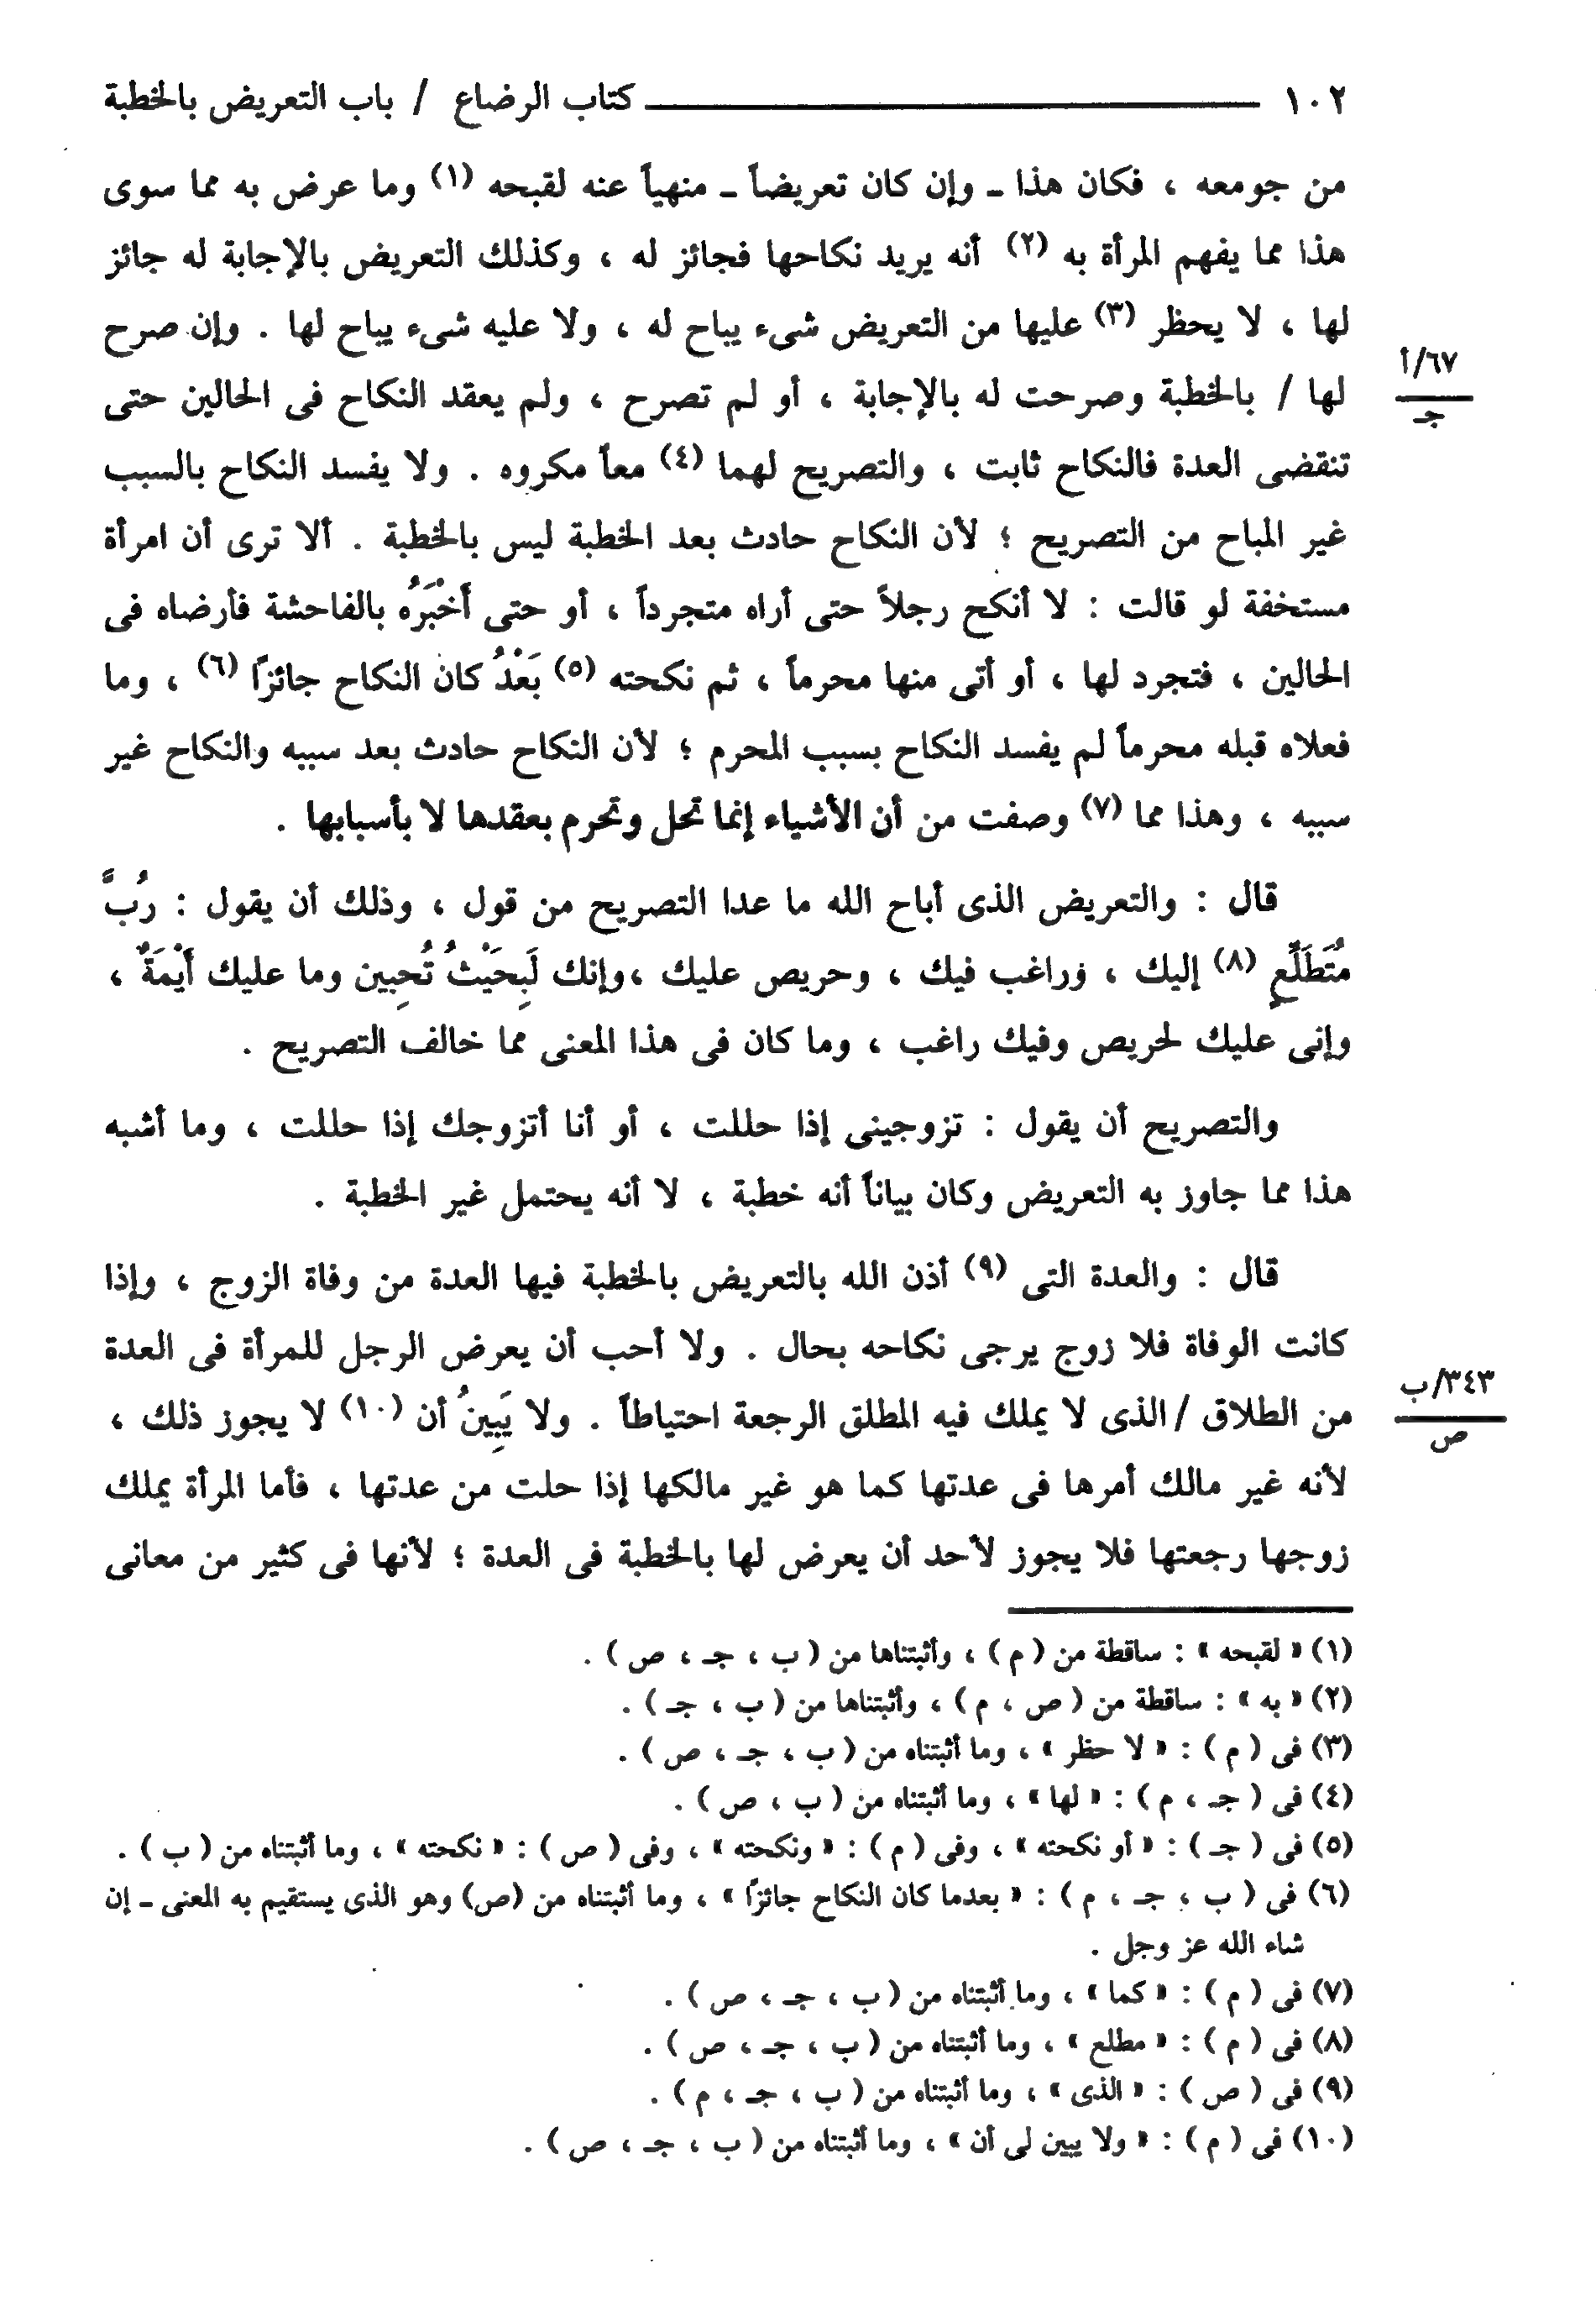 ١٠٢ كتاب الرضاع / باب التعريض بالخطبة
من جومعه ، فكان هذا ـ وإن كان تعريضاً ـ منهياً عنه لقبحه (١) وما عرض به مما سوى
هذا مما يفهم المرأة به (٢) أنه يريد نكاحها فجائز له ، وكذلك التعريض بالإجابة له جائز
لها ، لا يحظر (٣) عليها من التعريض شىء يباح له ، ولا عليه شىء يباح لها . وإن صرح
٦٧/أ
جـ
لها / بالخطبة وصرحت له بالإجابة ، أو لم تصرح ، ولم يعقد النكاح فى الحالين حتى
تنقضى العدة فالنكاح ثابت ، والتصريح لهما (٤) معاً مكروه . ولا يفسد النكاح بالسبب
غير المباح من التصريح ؛ لأن النكاح حادث بعد الخطبة ليس بالخطبة . ألا ترى أن امرأة
مستخفة لو قالت : لا أنكح رجلاً حتى أراه متجرداً ، أو حتى أَخْبَرَُه بالفاحشة فأرضاه فى
الحالين ، فتجرد لها ، أو أتى منها محرماً ، ثم نكحته (٥) بَعْدُ كان النكاح جائزاً (٦) ، وما
فعلاه قبله محرماً لم يفسد النكاح بسبب المحرم ؛ لأن النكاح حادث بعد سببه والنكاح غير
سببه ، وهذا مما (٧) وصفت من أن الأشياء إنما تحل وتحرم بعقدها لا بأسبابها .
قال : والتعريض الذى أباح الله ما عدا التصريح من قول ، وذلك أن يقول : رُبَّ
مُتَطَلِّعٍ (٨) إليك ، وراغب فيك ، وحريص عليك ،وإنك لَبِحَيْثُ تُحِبين وما عليك أَيْمَةٌ ،
وإنى عليك لحريص وفيك راغب ، وما كان فى هذا المعنى مما خالف التصريح .
والتصريح أن يقول : تزوجينى إذا حللت ، أو أنا أتزوجك إذا حللت ، وما أشبه
هذا مما جاوز به التعريض وكان بياناً أنه خطبة ، لا أنه يحتمل غير الخطبة .
قال : والعدة التى (٩) أذن الله بالتعريض بالخطبة فيها العدة من وفاة الزوج ، وإذا
كانت الوفاة فلا زوج يرجى نكاحه بحال . ولا أحب أن يعرض الرجل للمرأة فى العدة
٣٤٣/ب
ص
من الطلاق / الذى لا يملك فيه المطلق الرجعة احتياطاً . ولا يَبِينُ أن (١٠) لا يجوز ذلك ،
لأنه غير مالك أمرها فى عدتها كما هو غير مالكها إذا حلت من عدتها ، فأما المرأة يملك
زوجها رجعتها فلا يجوز لأحد أن يعرض لها بالخطبة فى العدة ؛ لأنها فى كثير من معانى
(١) « لقبحه » : ساقطة من ( م ) ، وأثبتناها من ( ب ، جـ ، ص ) .
(٢) « به » : ساقطة من ( ص ، م ) ، وأثبتناها من ( ب ، جـ ) .
(٣) فى ( م ) : « لا حظر » ، وما أثبتناه من ( ب ، جـ ، ص ) .
(٤) فى ( جـ ، م ) : « لها » ، وما أثبتناه من ( ب ، ص ) .
(٥) فى ( جـ ) : « أو نكحته » ، وفى ( م ) : « ونكحته » ، وفى ( ص ) : « نكحته » ، وما أثبتناه من ( ب ) .
(٦) فى ( ب ، جـ ، م ) : « بعدما كان النكاح جائزاً » ، وما أثبتناه من (ص) وهو الذى يستقيم به المعنى ـ إن
شاء الله عز وجل .
(٧) فى ( م ) : « كما » ، وما أثبتناه من ( ب ، جـ ، ص ) .
(٨) فى ( م ) : « مطلع » ، وما أثبتناه من ( ب ، جـ ، ص ) .
(٩) فى ( ص ) : « الذى » ، وما أثبتناه من ( ب ، جـ ، م ) .
(١٠) فى ( م ) : « ولا يبين لى أن » ، وما أثبتناه من ( ب ، جـ ، ص ) .